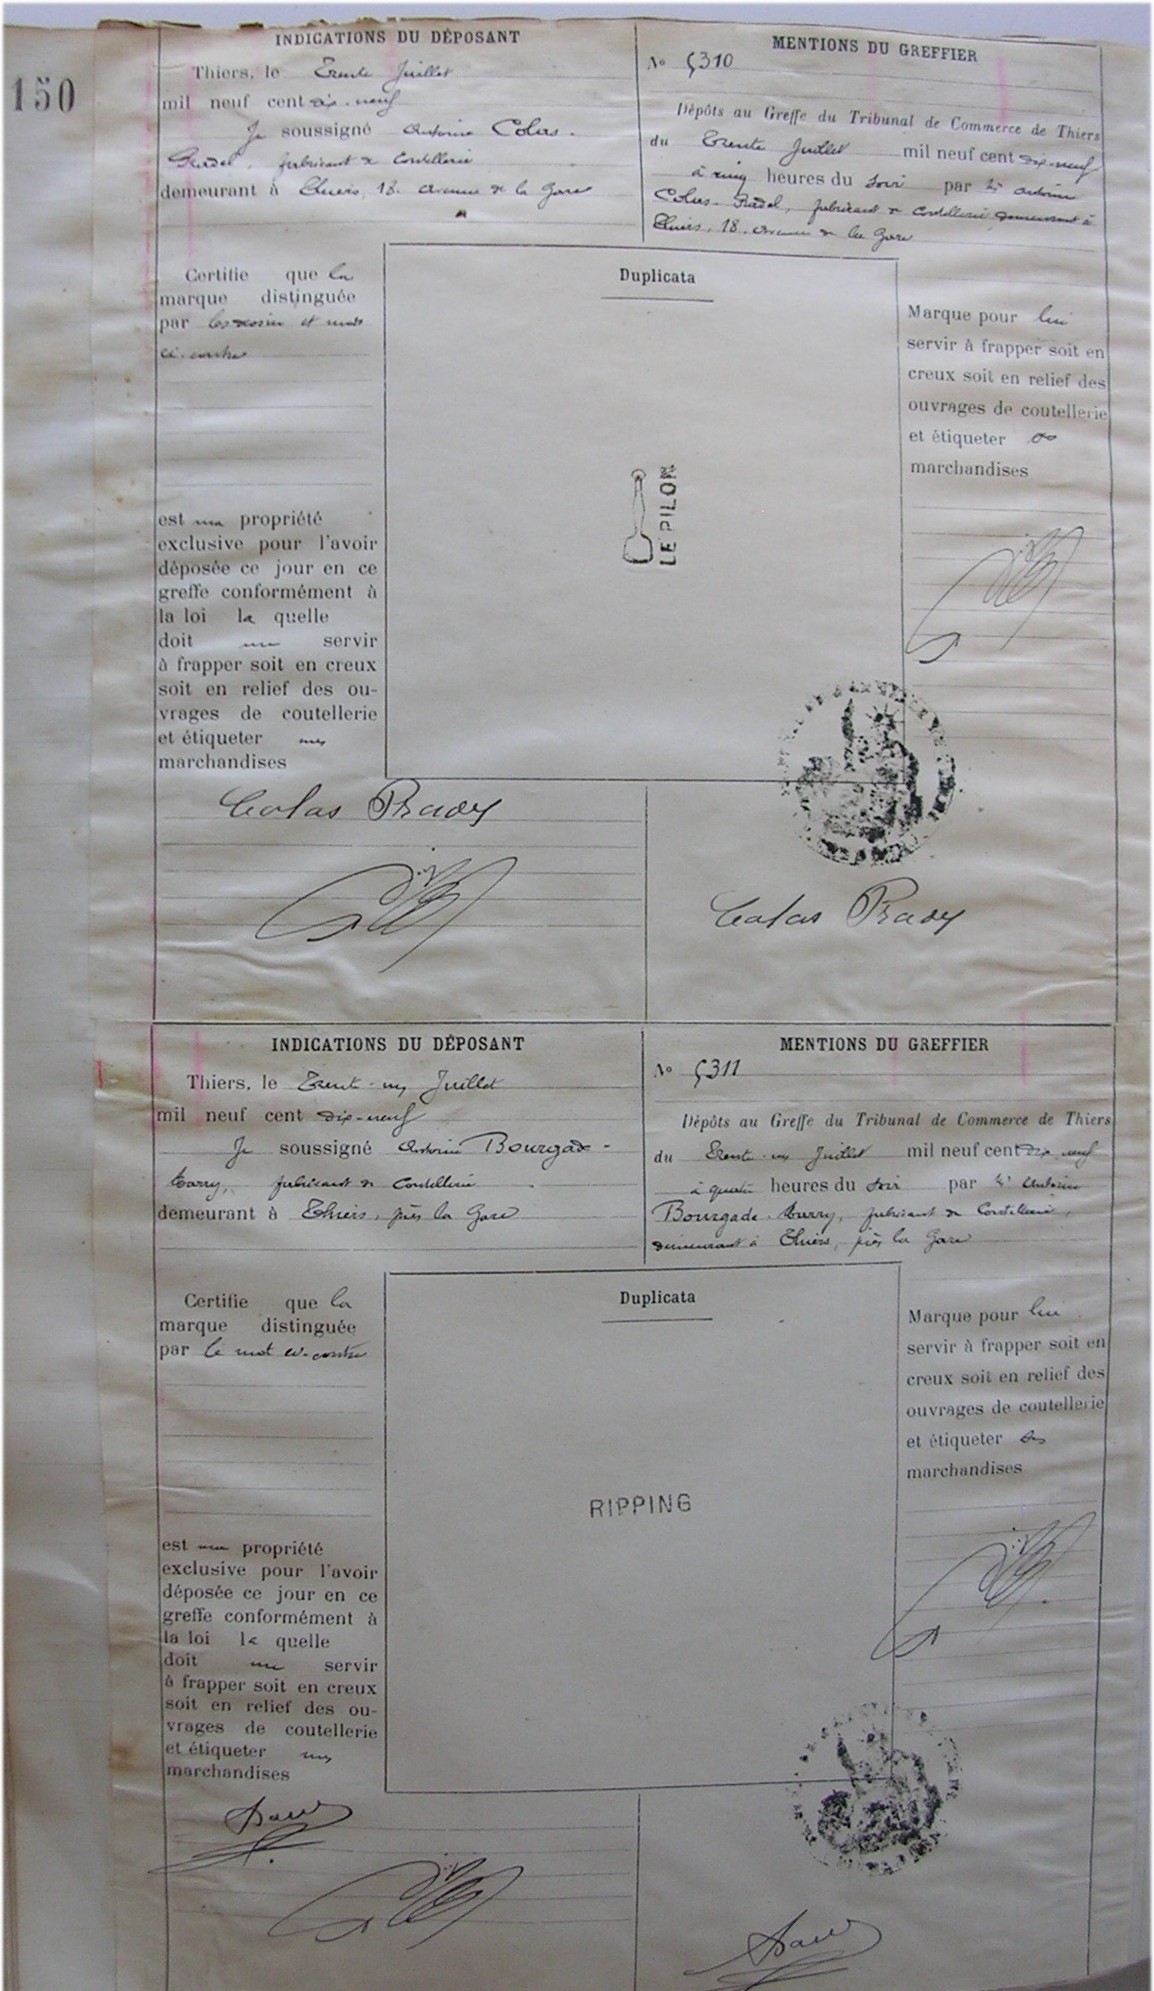 150
INDICATIONS DU DÉPOSANT
Thiers, le Trente Juillet
mil neuf cent dix-neuf
Je soussigné Antoine Colas-
fabricant de Coutellerie
demeurant à Thiers, 18. avenue de la Gare
MENTIONS DU GREFFIER
No 5310
Dépôts au Greffe du Tribunal de Commerce de Thiers
du Trente Juillet mil neuf cent dix-neuf
à cinq heures du soir par Mr Antoine
Colas- fabricant de coutellerie, demeurant à
Thiers, 18. avenue de la Gare
Certifie que la
marque distinguée
par les dessin et mots
ci-contre
est ma propriété
exclusive pour l'avoir
déposée ce jour en ce
greffe conformément à
la loi la quelle
doit me servir
à frapper soit en creux
soit en relief des ou-
vrages de coutellerie
et étiqueter mes
marchandises
Duplicata
LE PILON
Marque pour lui
servir à frapper soit en
creux soit en relief des
ouvrages de coutellerie
et étiqueter ses
marchandises
Colas Prady
Colas Prady
INDICATIONS DU DÉPOSANT
Thiers, le Trente-un Juillet
mil neuf cent dix-neuf
Je soussigné Antoine Bourgade-
fabricant de Coutellerie
demeurant à Thiers, près la Gare
MENTIONS DU GREFFIER
No 5311
Dépôts au Greffe du Tribunal de Commerce de Thiers
du Trente-un Juillet mil neuf cent dix-neuf
à quatre heures du soir par Mr Antoine
Bourgade- fabricant de Coutellerie,
demeurant à Thiers, près la Gare
Certifie que la
marque distinguée
par le mot ci-contre
est ma propriété
exclusive pour l'avoir
déposée ce jour en ce
greffe conformément à
la loi la quelle
doit me servir
à frapper soit en creux
soit en relief des ou-
vrages de coutellerie
et étiqueter mes
marchandises
Duplicata
RIPPING
Marque pour lui
servir à frapper soit en
creux soit en relief des
ouvrages de coutellerie
et étiqueter ses
marchandises